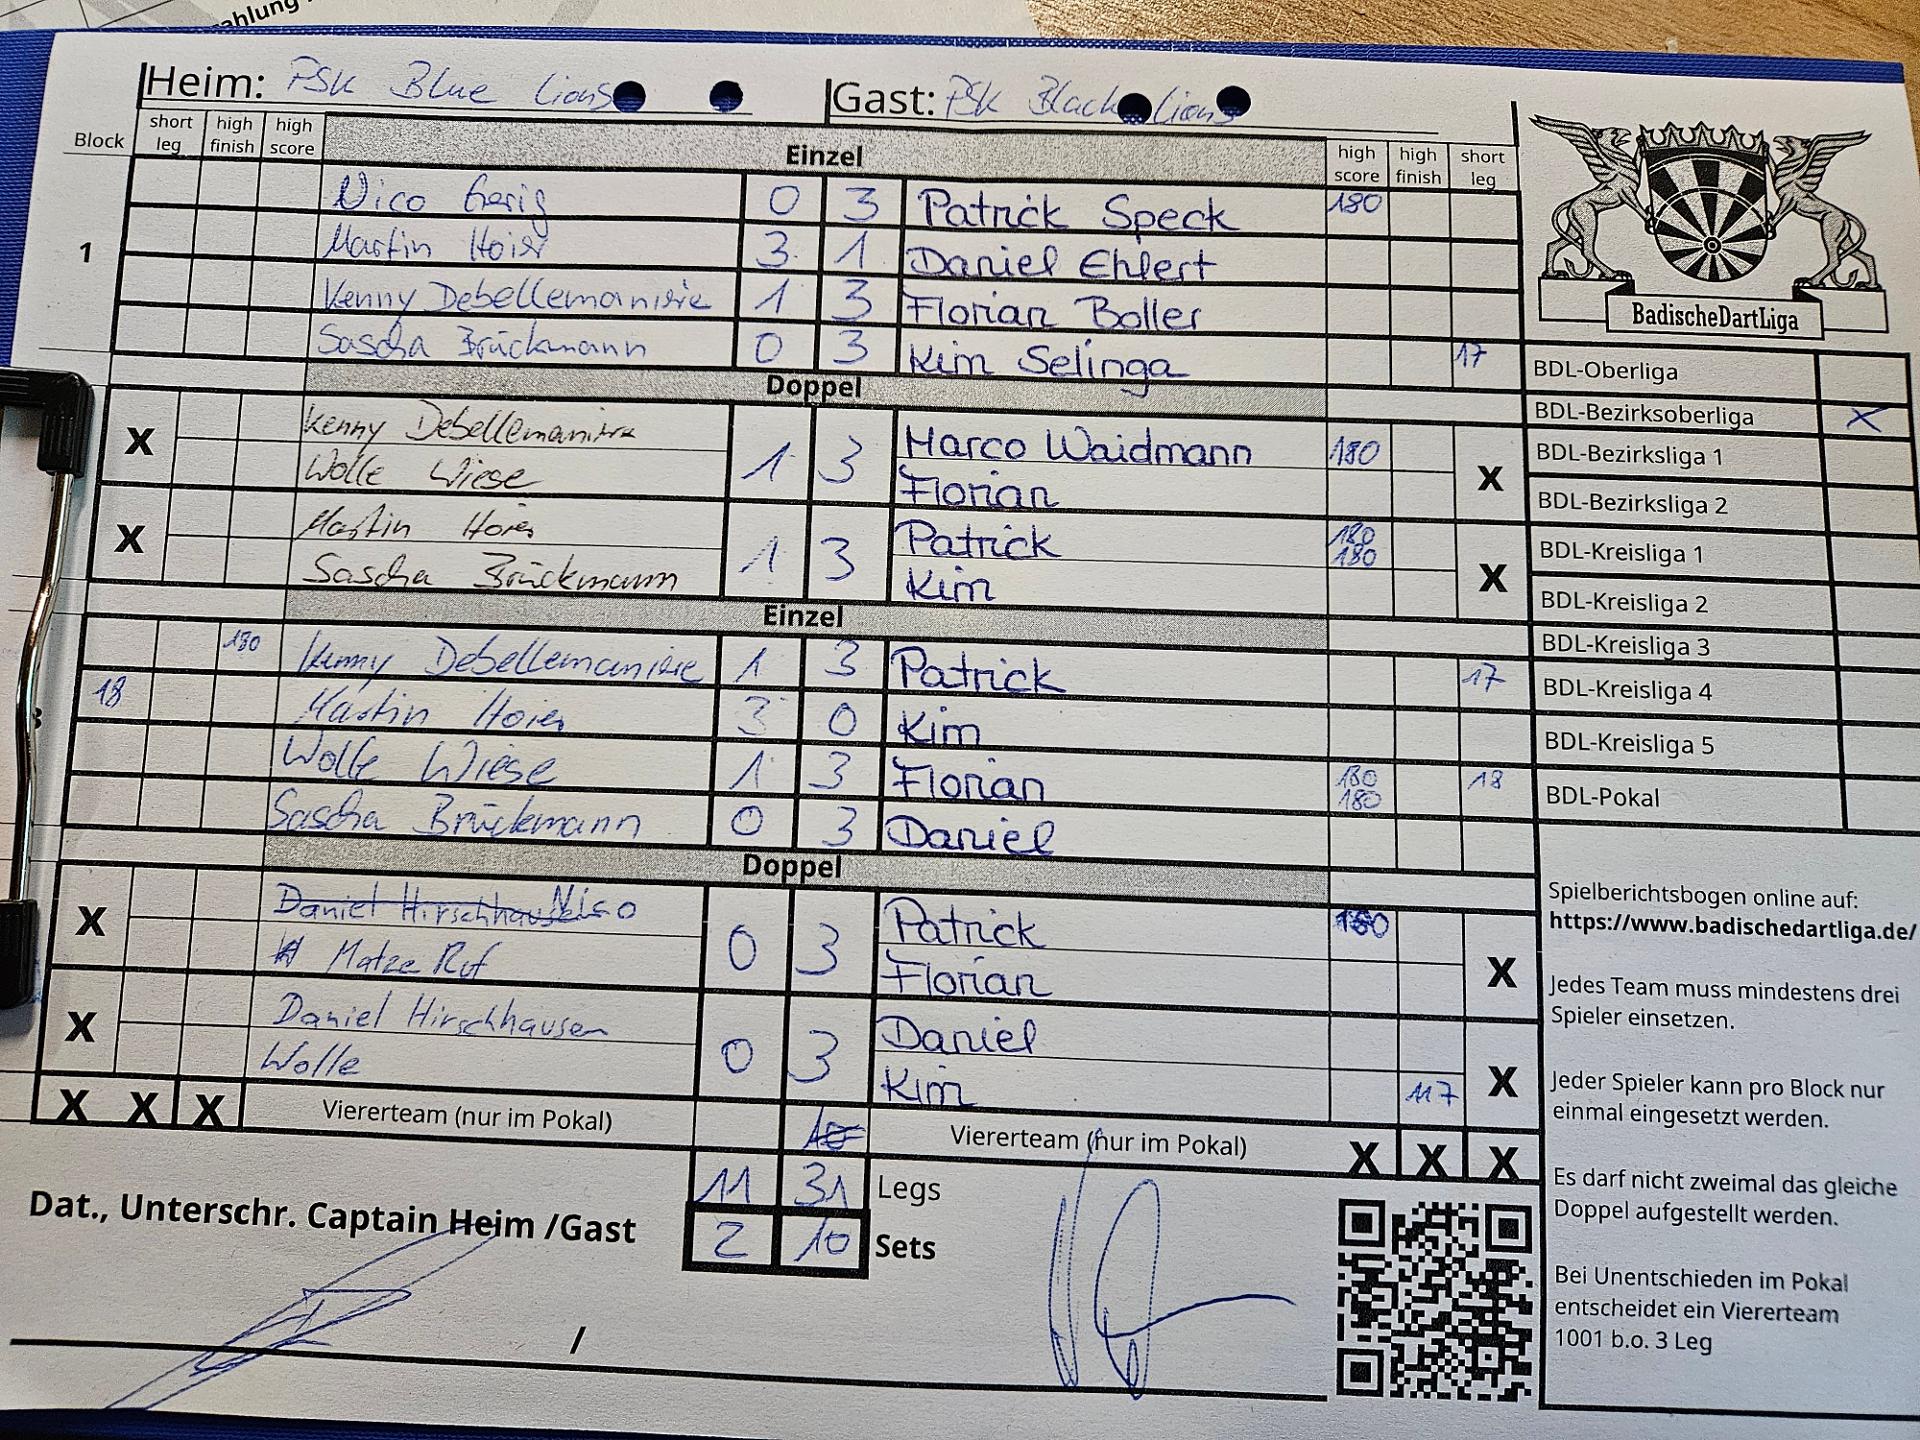 ahlung
Heim: PSK Blue Lions Gast: PSK Black Lions
Block short leg high finish high score Einzel high score high finish short leg
Nico Gerig 0 3 Patrick Speck 180
1 Martin Hoier 3 1 Daniel Ehlert
Kenny Debellemanière 1 3 Florian Boller
Sascha Brückmann 0 3 Kim Selinga 17
Doppel
X Kenny Debellemanière 1 3 Marco Waidmann 180 X
Wolle Wiese Florian
X Martin Hoier 1 3 Patrick 180 180 X
Sascha Brückmann Kim
Einzel
180 Kenny Debellemanière 1 3 Patrick 17
18 Martin Hoier 3 0 Kim
Wolle Wiese 1 3 Florian 180 180 18
Sascha Brückmann 0 3 Daniel
Doppel
X Daniel Hirschhausen Nico 0 3 Patrick 180 X
Matze Ruf Florian
X Daniel Hirschhausen 0 3 Daniel X
Wolle Kim 117
X X X Viererteam (nur im Pokal) Viererteam (nur im Pokal) X X X
11 31 Legs
2 10 Sets
Dat., Unterschr. Captain Heim /Gast
/
BadischeDartLiga
BDL-Oberliga
BDL-Bezirksoberliga X
BDL-Bezirksliga 1
BDL-Bezirksliga 2
BDL-Kreisliga 1
BDL-Kreisliga 2
BDL-Kreisliga 3
BDL-Kreisliga 4
BDL-Kreisliga 5
BDL-Pokal
Spielberichtsbogen online auf:
https://www.badischedartliga.de/
Jedes Team muss mindestens drei
Spieler einsetzen.
Jeder Spieler kann pro Block nur
einmal eingesetzt werden.
Es darf nicht zweimal das gleiche
Doppel aufgestellt werden.
Bei Unentschieden im Pokal
entscheidet ein Viererteam
1001 b.o. 3 Leg